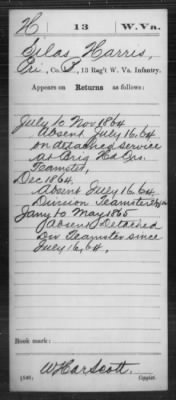 H | 13 | W. Va.
Silas Harris,
Pvt., Co. F, 13 Reg't W. Va. Infantry.
Appears on Returns as follows:
July to Nov 1864
Absent July 16, 64
on detached service
at Brig Hd Qrs.
Teamster,
Dec 1864.
Absent July 16, 64
Division Teamster
Jany to May 1865
Absent Detached
Div Teamster since
July 16, 64.
Book mark:
W Har Scott.
(546)
Copyist.